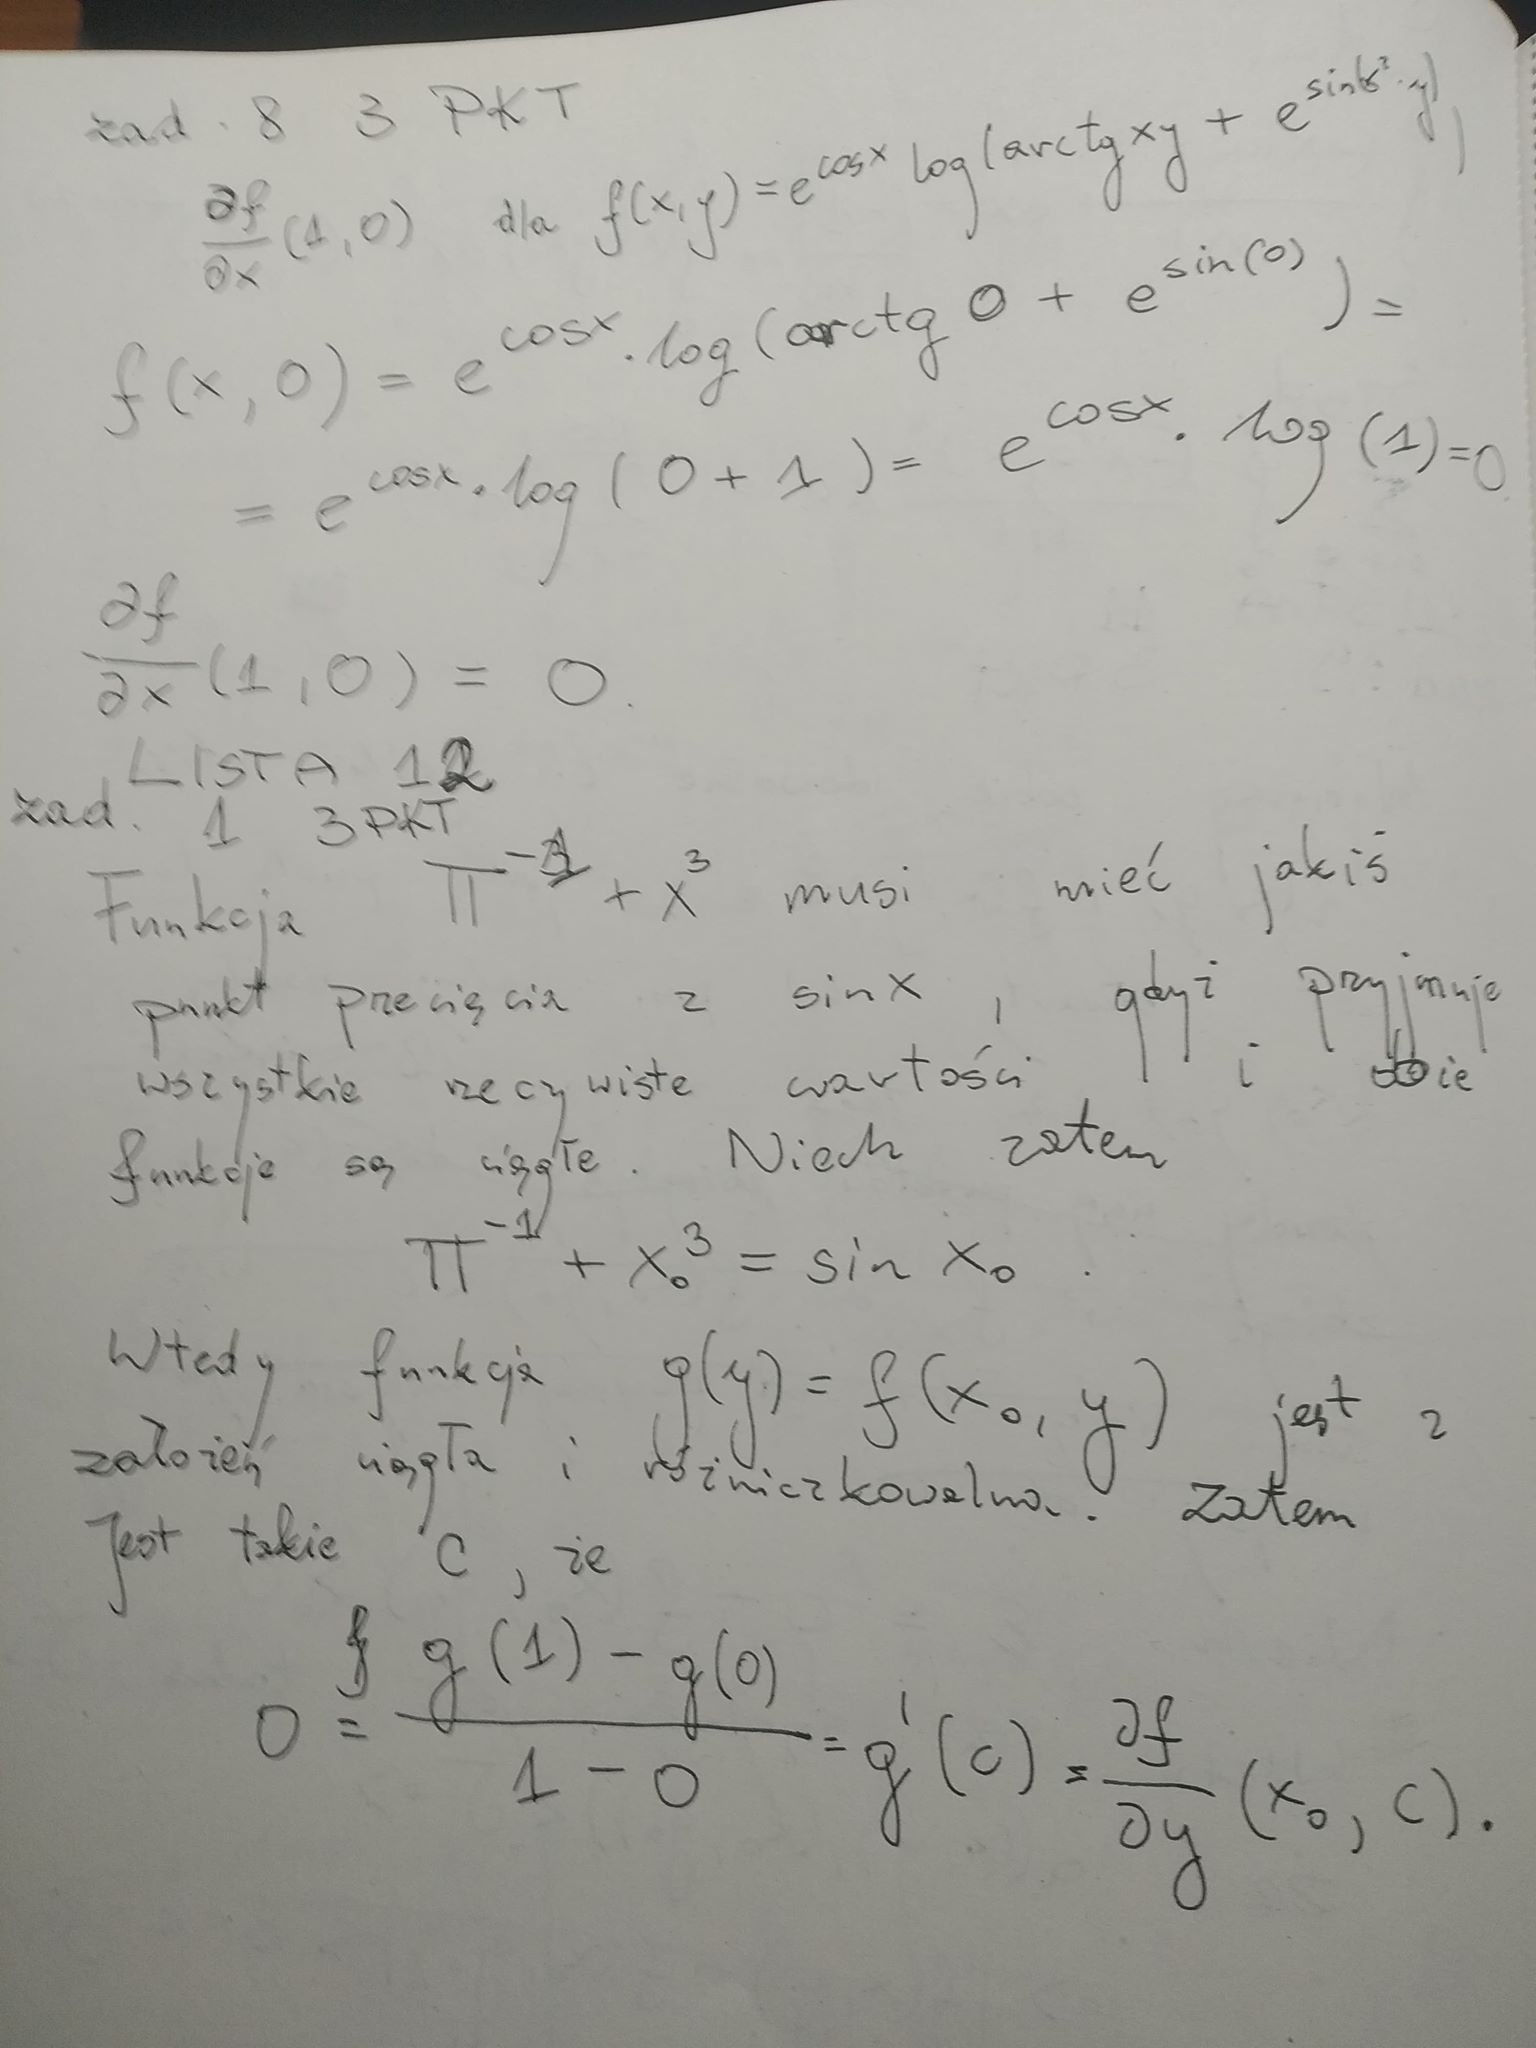 zad. 8 3 PKT
∂f/∂x (1,0) dla f(x,y) = e^{cosx} log(arctg xy + e^{sin(x²·y)})
f(x,0) = e^{cosx} · log(arctg 0 + e^{sin(0)}) =
= e^{cosx} · log(0+1) = e^{cosx} · log(1) = 0
∂f/∂x (1,0) = 0.
LISTA 12
zad. 1 3PKT
Funkcja π^{-1} + x³ musi mieć jakiś
punkt przecięcia z sinx, gdyż przyjmuje
wszystkie rzeczywiste wartości i obie
funkcje są ciągłe. Niech zatem
π^{-1} + x₀³ = sin x₀.
Wtedy funkcja g(y) = f(x₀, y) jest z
założeń ciągła i różniczkowalna. Zatem
Jest takie C, że
0 = (g(1) - g(0))/(1 - 0) = g'(C) = ∂f/∂y (x₀, C).